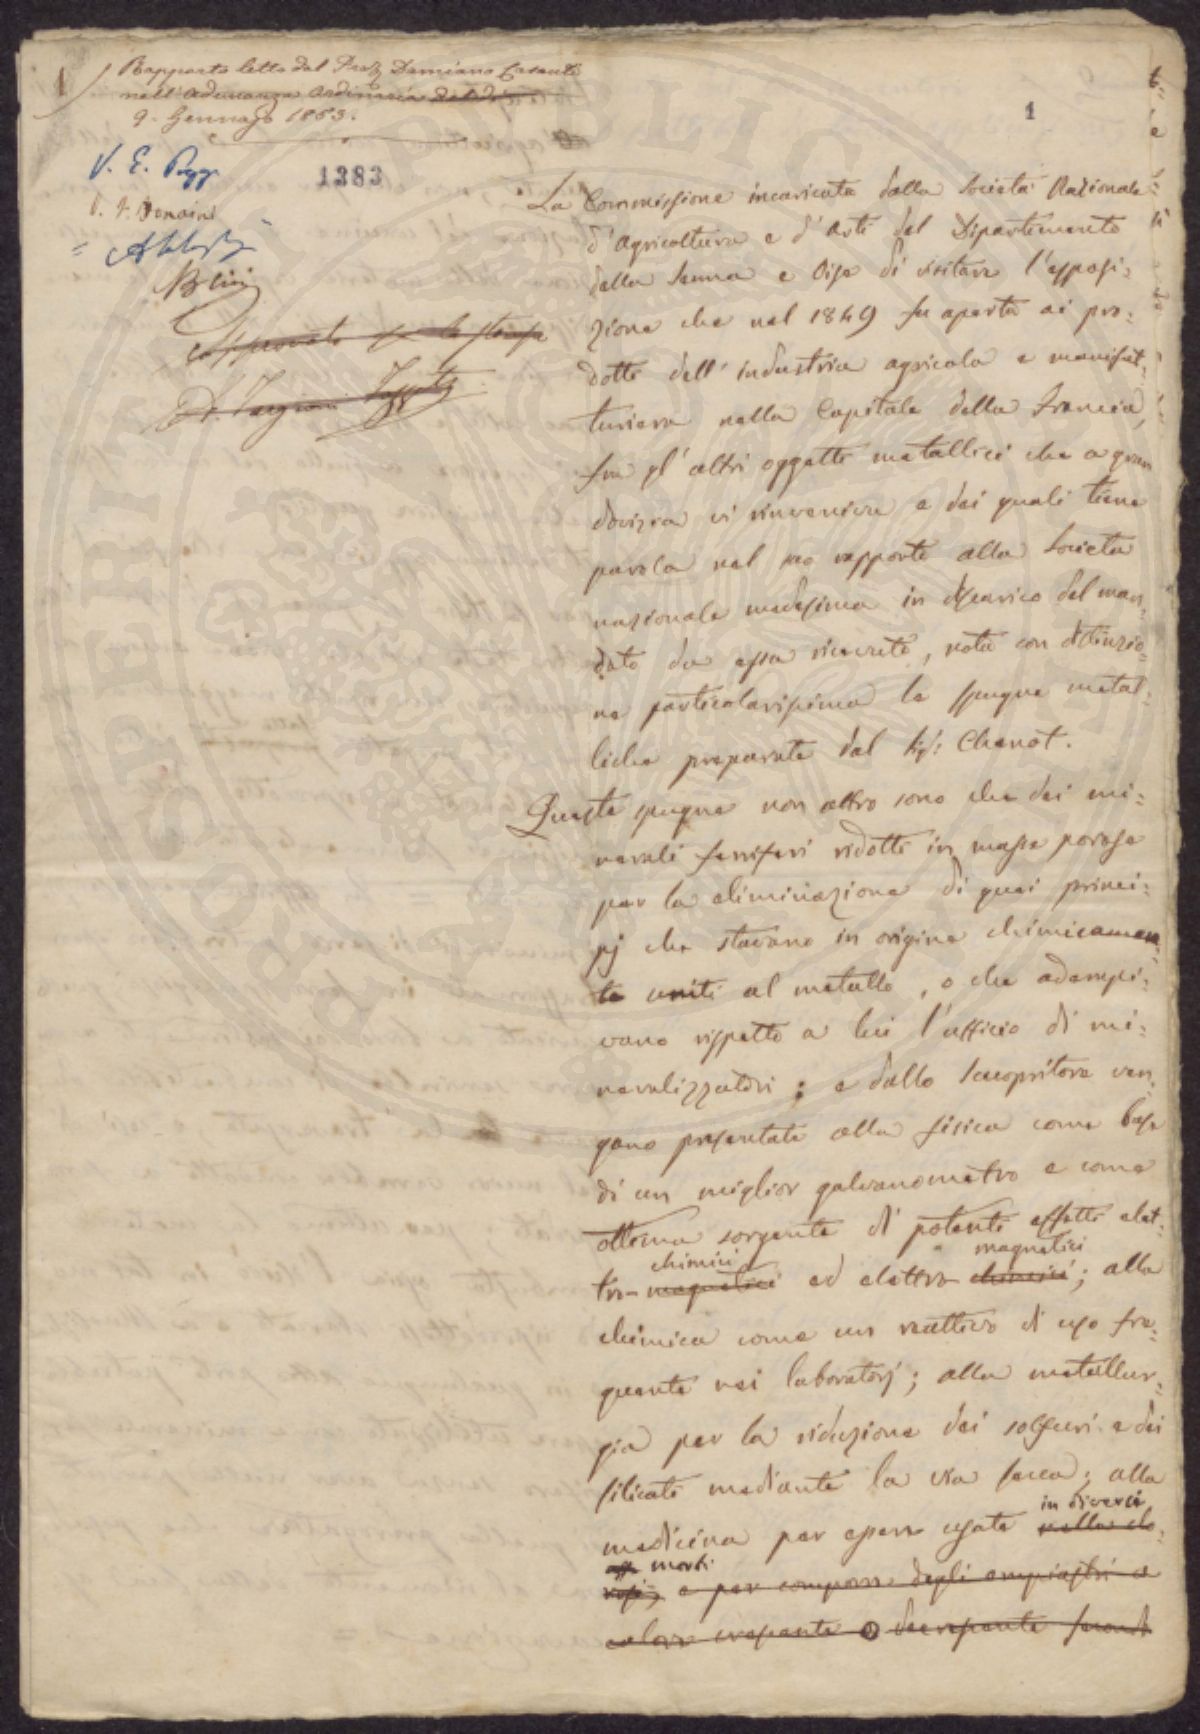 1
Rapporto letto dal Prof Damiano Casanti
nell'Adunanza Ordinaria del dì
9. Gennajo 1853.
1
V. E. Poggi
1383
V.
approvato per la stampa
D. Targioni Tozzetti
La Commissione incaricata dalla Società Nazionale
d'Agricoltura e d'Arti del Dipartimento
della Senna e Oise di visitare l'esposi=
zione che nel 1849 fu aperta ai pro=
dotti dell'industria agricola e manifat=
turiera nella Capitale della Francia,
fra gl'altri oggetti metallici che a gran
dovizia vi rinveniva e dei quali tiene
parola nel suo rapporto alla Società
nazionale medesima in discarico del man=
dato da essa ricevuto, nota con distinzio=
ne particolarissima le spugne metal=
liche preparate dal Sigr: Chenot.
Queste spugne non altro sono che dei mi=
nerali ferriferi ridotti in massa porosa
per la eliminazione di quei princi=
pj che stavano in origine chimicamen=
te uniti al metallo, o che adempi=
vano rispetto a lui l'ufficio di mi=
neralizzatori; e dallo Scuopritore ven=
gono presentate alla fisica come base
di un miglior galvanometro e come
ottima sorgente di potenti effetti elet=
chimici magnetici
tro-magnetici ed elettro-chimici; alla
chimica come un reattivo di uso fre=
quente nei laboratorj; alla metallur=
gia per la riduzione dei solfuri e dei
silicati mediante la via secca; alla
in diversi
medicina per essere usate nella clo=
morbi
rosi, e per comporre degli empiastri a
calore crescente o decrescente secondo